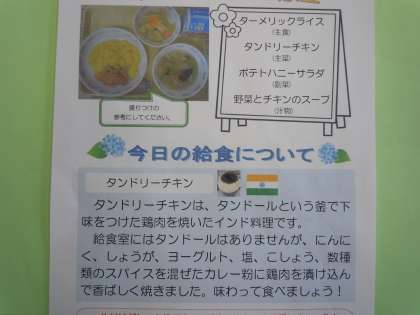 ターメリックライス
(主食)
タンドリーチキン
(主菜)
ポテトハニーサラダ
(副菜)
野菜とチキンのスープ
(汁物)
盛りつけの
参考にしてください。
今日の給食について
タンドリーチキン
タンドリーチキンは、タンドールという釜で下
味をつけた鶏肉を焼いたインド料理です。
給食室にはタンドールはありませんが、にんに
く、しょうが、ヨーグルト、塩、こしょう、数種
類のスパイスを混ぜたカレー粉に鶏肉を漬け込ん
で香ばしく焼きました。味わって食べましょう！